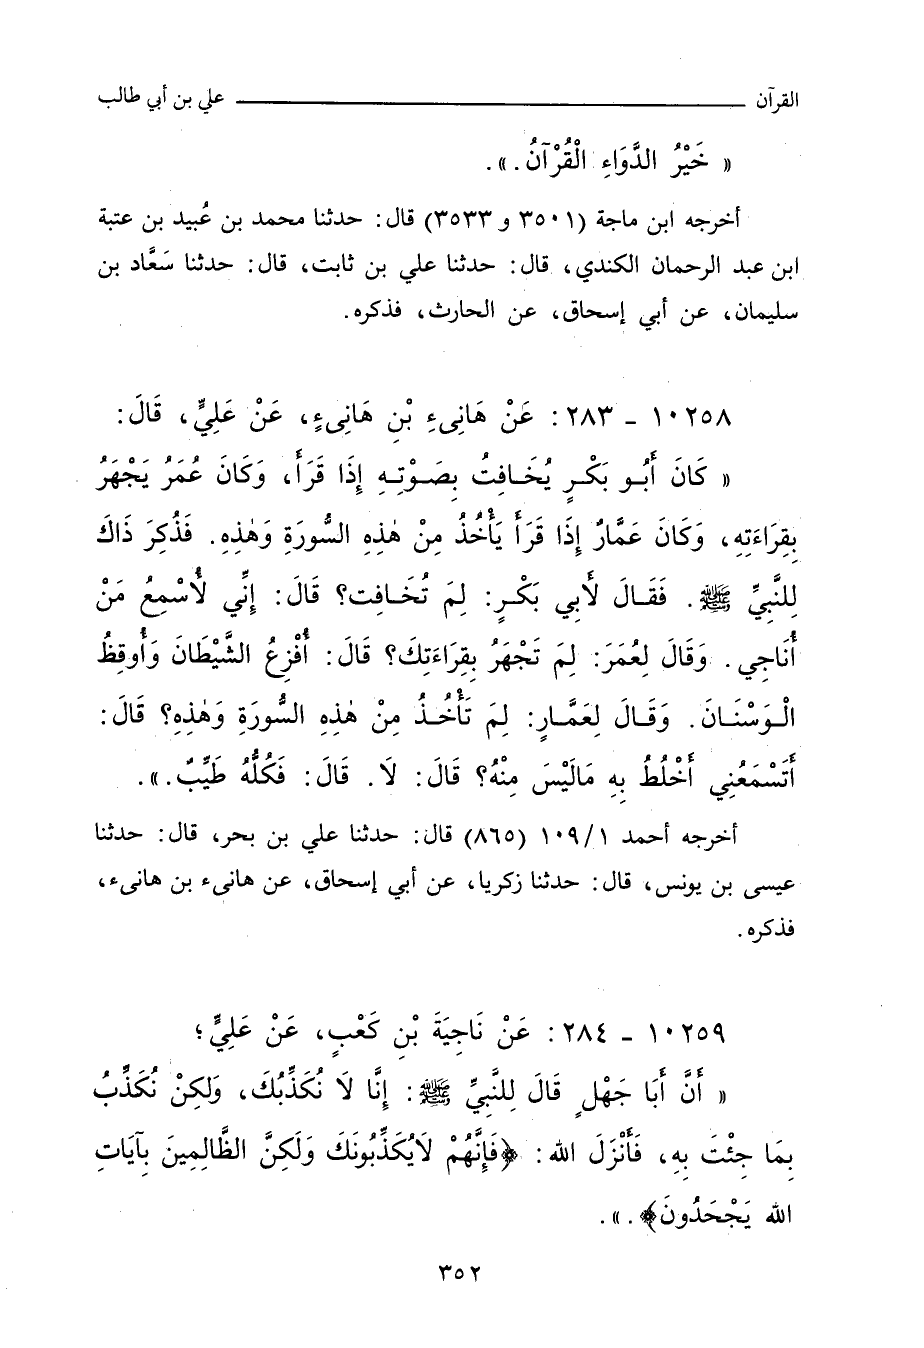 القرآن ــــــــــــــــــــ علي بن أبي طالب
« خَيْرُ الدَّوَاءِ الْقُرْآنُ . ».
أخرجه ابن ماجة (٣٥٠١ و ٣٥٣٣) قال: حدثنا محمد بن عُبيد بن عتبة
ابن عبد الرحمان الكندي، قال: حدثنا علي بن ثابت، قال: حدثنا سَعَّاد بن
سليمان، عن أبي إسحاق، عن الحارث، فذكره.
١٠٢٥٨ - ٢٨٣: عَنْ هَانِىءِ بْنِ هَانِىءٍ، عَنْ عَلِيٍّ، قَالَ:
« كَانَ أَبُو بَكْرٍ يُخَافِتُ بِصَوْتِهِ إِذَا قَرَأَ، وَكَانَ عُمَرُ يَجْهَرُ
بِقِرَاءَتِهِ، وَكَانَ عَمَّارٌ إِذَا قَرَأَ يَأْخُذُ مِنْ هٰذِهِ السُّورَةِ وَهٰذِهِ. فَذُكِرَ ذَاكَ
لِلنَّبِيِّ ﷺ . فَقَالَ لأَبِي بَكْرٍ: لِمَ تُخَافِت؟ قَالَ: إِنِّي لأُسْمِعُ مَنْ
أُنَاجِي. وَقَالَ لِعُمَرَ: لِمَ تَجْهَرُ بِقِرَاءَتِكَ؟ قَالَ: أُفْزِعُ الشَّيْطَانَ وَأُوقِظُ
الْوَسْنَانَ. وَقَالَ لِعَمَّارٍ: لِمَ تَأْخُذُ مِنْ هٰذِهِ السُّورَةِ وَهٰذِهِ؟ قَالَ:
أَتَسْمَعُنِي أَخْلُطُ بِهِ مَالَيْسَ مِنْهُ؟ قَالَ: لَا. قَالَ: فَكُلُّهُ طَيِّبٌ. ».
أخرجه أحمد ١٠٩/١ (٨٦٥) قال: حدثنا علي بن بحر، قال: حدثنا
عيسى بن يونس، قال: حدثنا زكريا، عن أبي إسحاق، عن هانىء بن هانىء،
فذكره.
١٠٢٥٩ - ٢٨٤: عَنْ نَاجِيَةَ بْنِ كَعْبٍ، عَنْ عَلِيٍّ؛
« أَنَّ أَبَا جَهْلٍ قَالَ لِلنَّبِيِّ ﷺ: إِنَّا لَا نُكَذِّبُكَ، وَلكِنْ نُكَذِّبُ
بِمَا جِئْتَ بِهِ، فَأَنْزَلَ الله: ﴿فَإِنَّهُمْ لَايُكَذِّبُونَكَ وَلَكِنَّ الظَّالِمِينَ بِآيَاتِ
الله يَجْحَدُونَ﴾. ».
٣٥٢